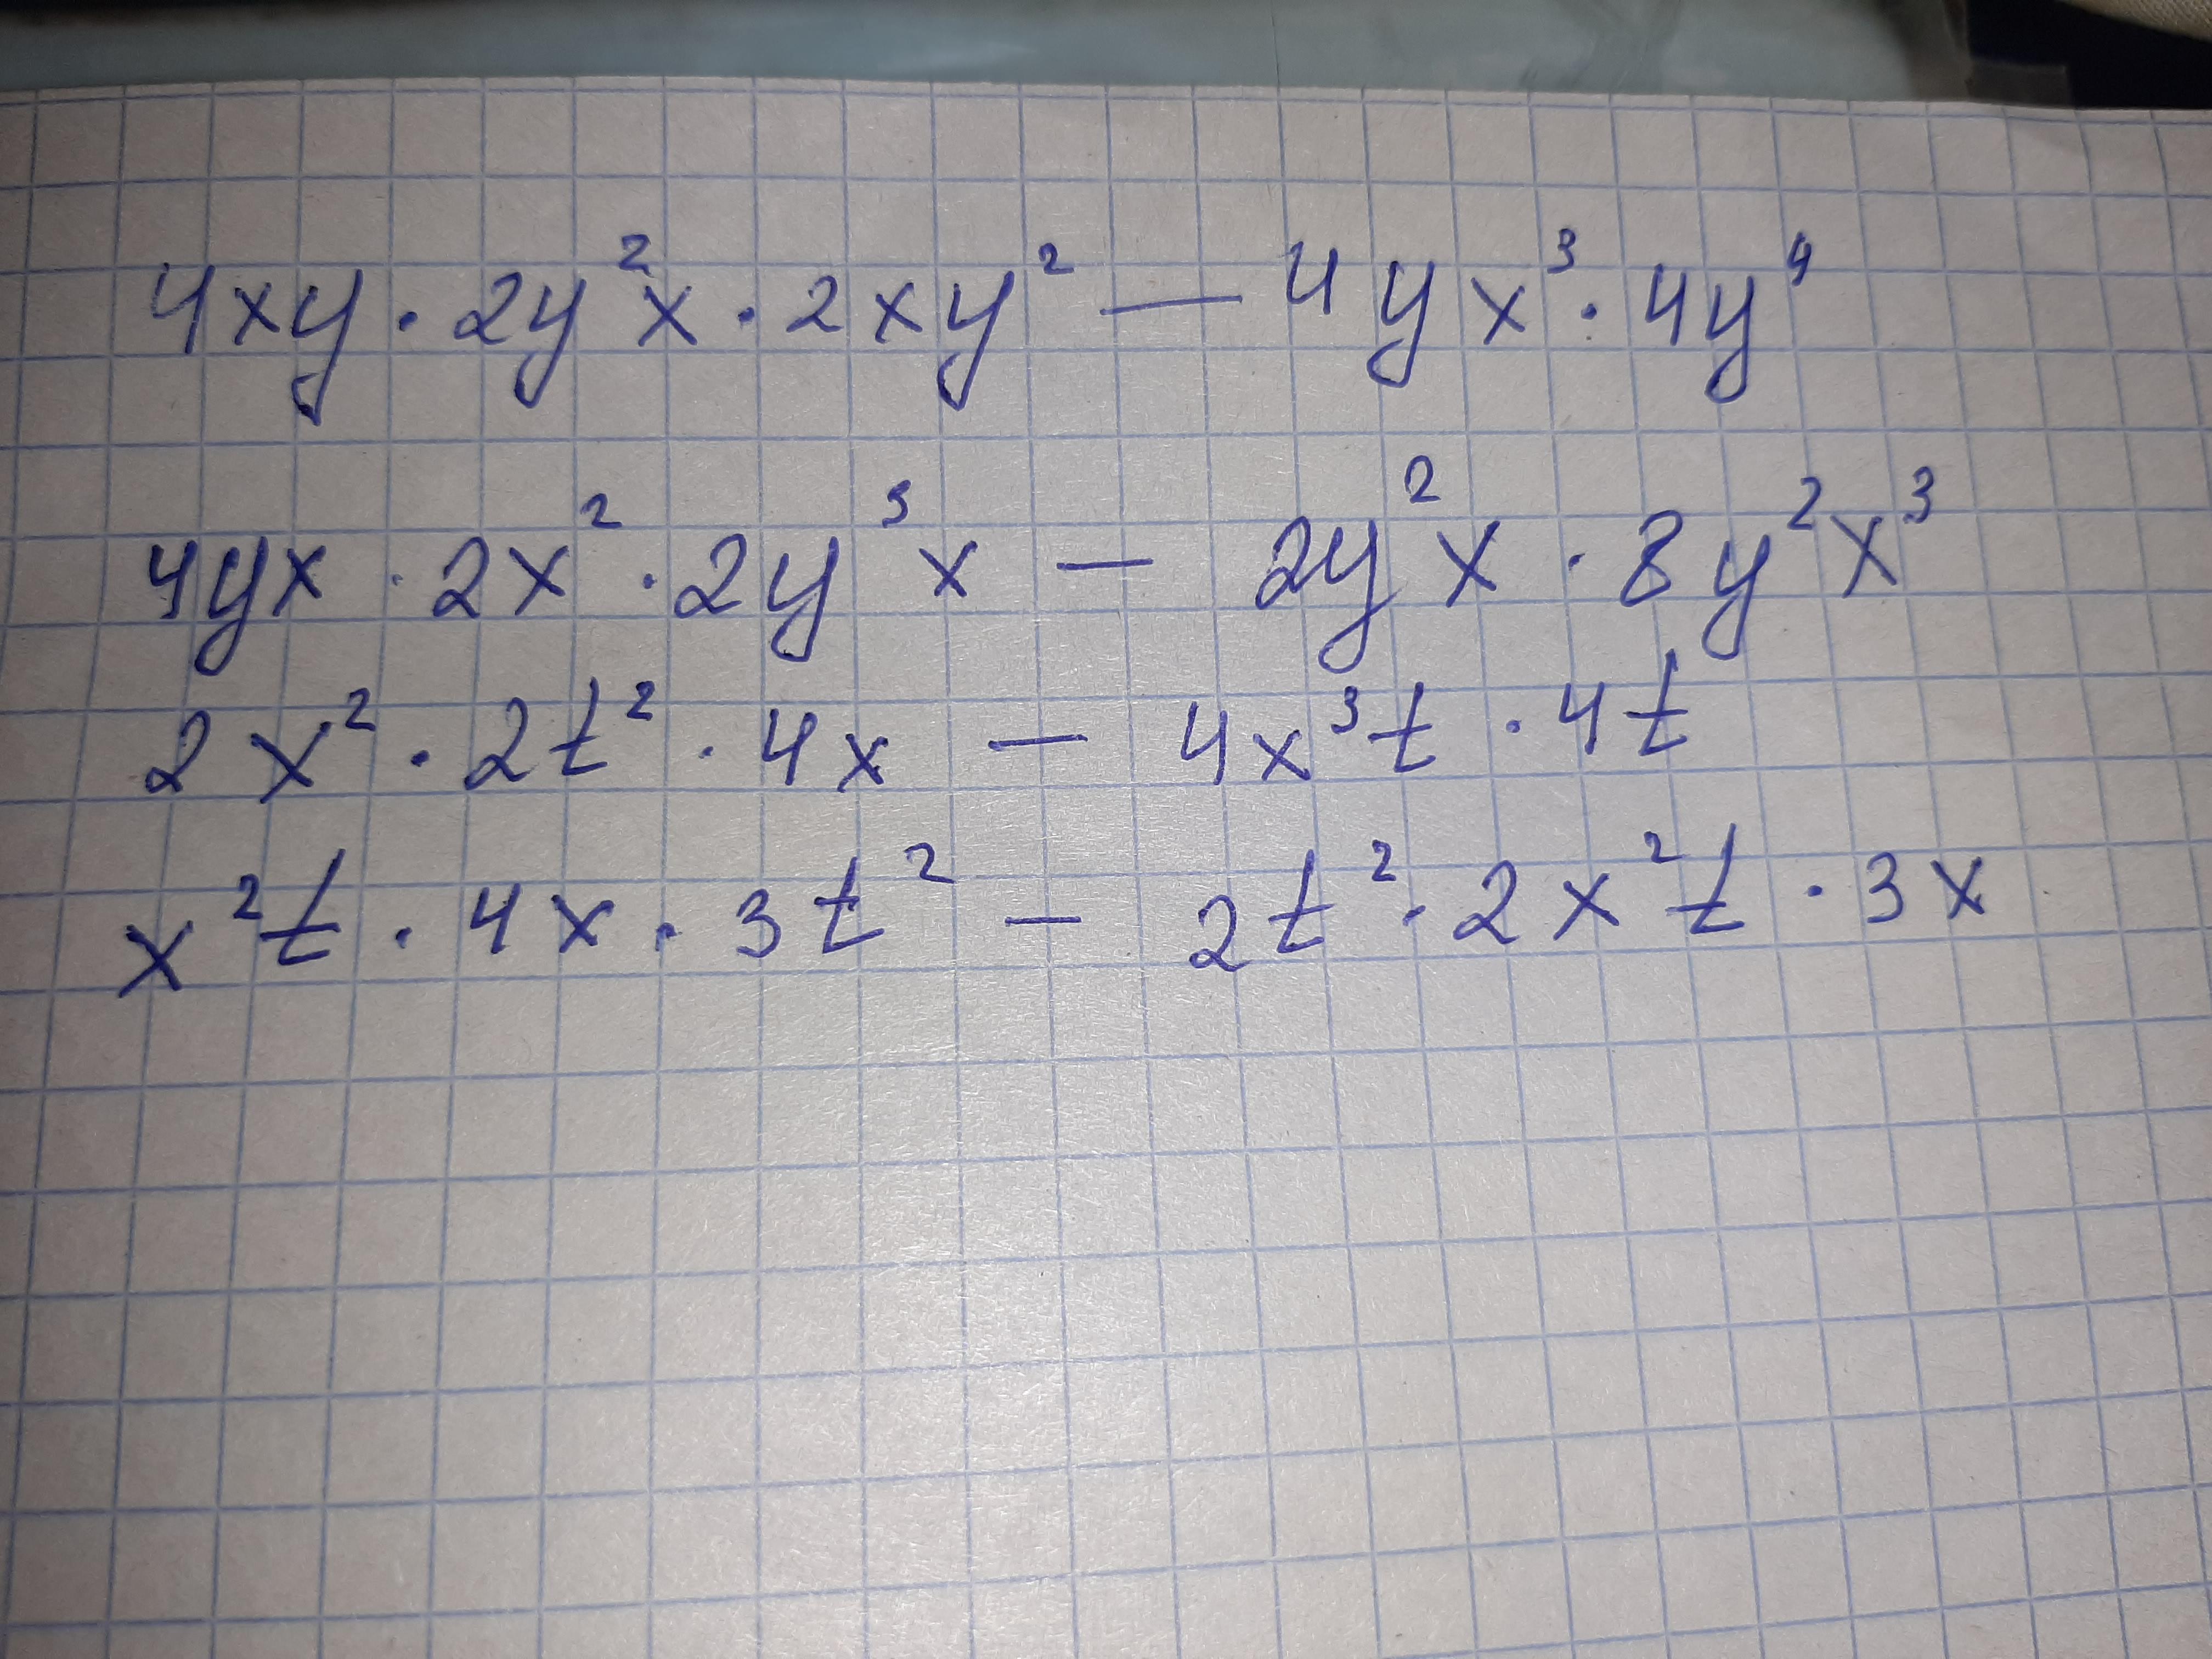 4xy · 2y²x · 2xy² — 4yx³ · 4y⁴
4yx · 2x² · 2y³x — 2y²x · 8y²x³
2x² · 2t² · 4x — 4x³t · 4t
x²t · 4x · 3t² — 2t² · 2x²t · 3x